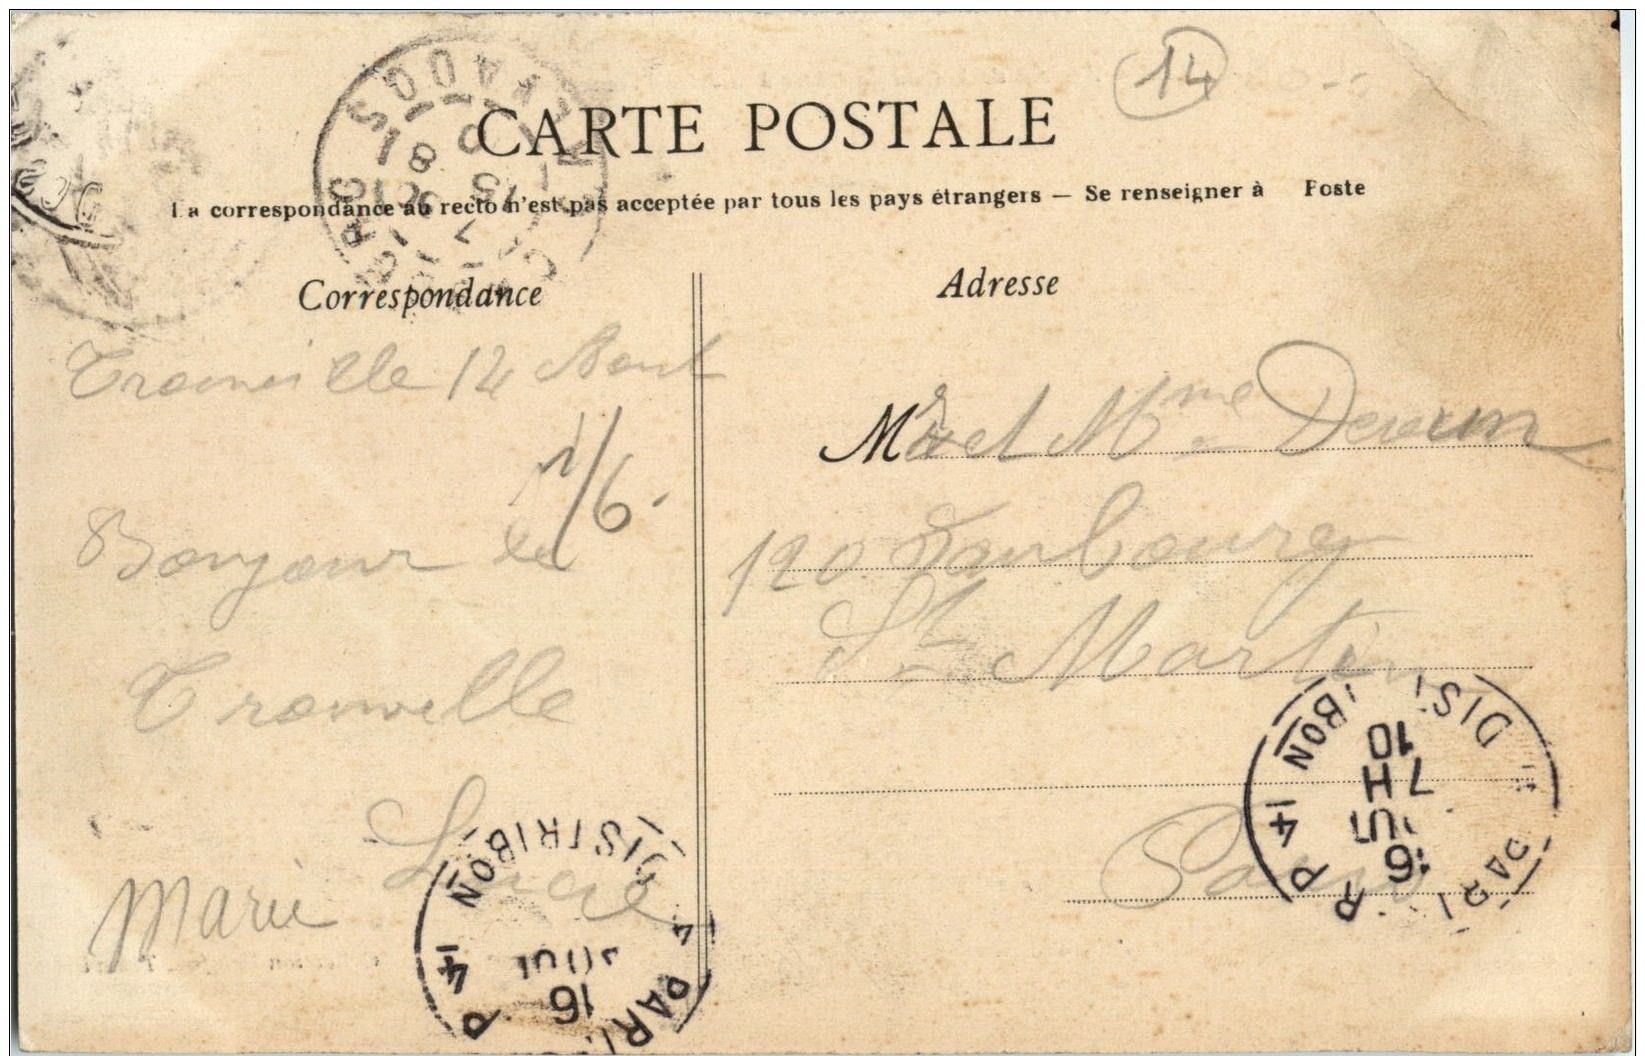 14
CARTE POSTALE
La correspondance au recto n'est pas acceptée par tous les pays étrangers — Se renseigner à Poste
Correspondance
Trouville 14 Aout
1/6.
Bonjour de
Trouville
Lucie
Marie
Adresse
Mr et Mme
120 Faubourg
St Martin
Paris
DISTRIBON
PARIS
P 4
16
DISTRIBON
PARIS
P 4
7H 10
16